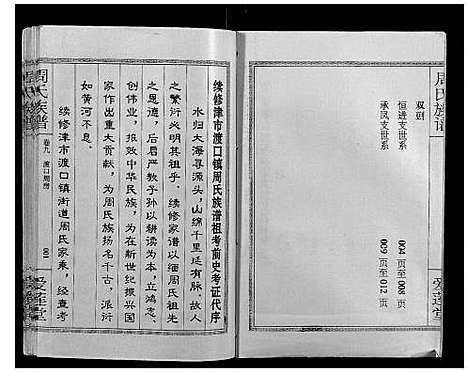 周氏族谱
双刷
恒进支世系 004页至008页
承风支世系 009页至012页
爱莲堂
续修津市市渡口镇周氏族谱祖考前史考证代序
水归大海寻源头，山绵千里延有脉。故人
之繁衍必明其祖乎。续修家谱以缅周氏祖先
之恩德，后启严教子孙以耕读为本，立鸿志、
创伟业，报效中华民族，为在新世纪振兴国
家作出重大贡献，为周氏族扬名千古，派衍
如黄河不息。
续修津市市渡口镇街道周氏家乘，经查考
周氏族谱
卷九 渡口周房
001
爱莲堂